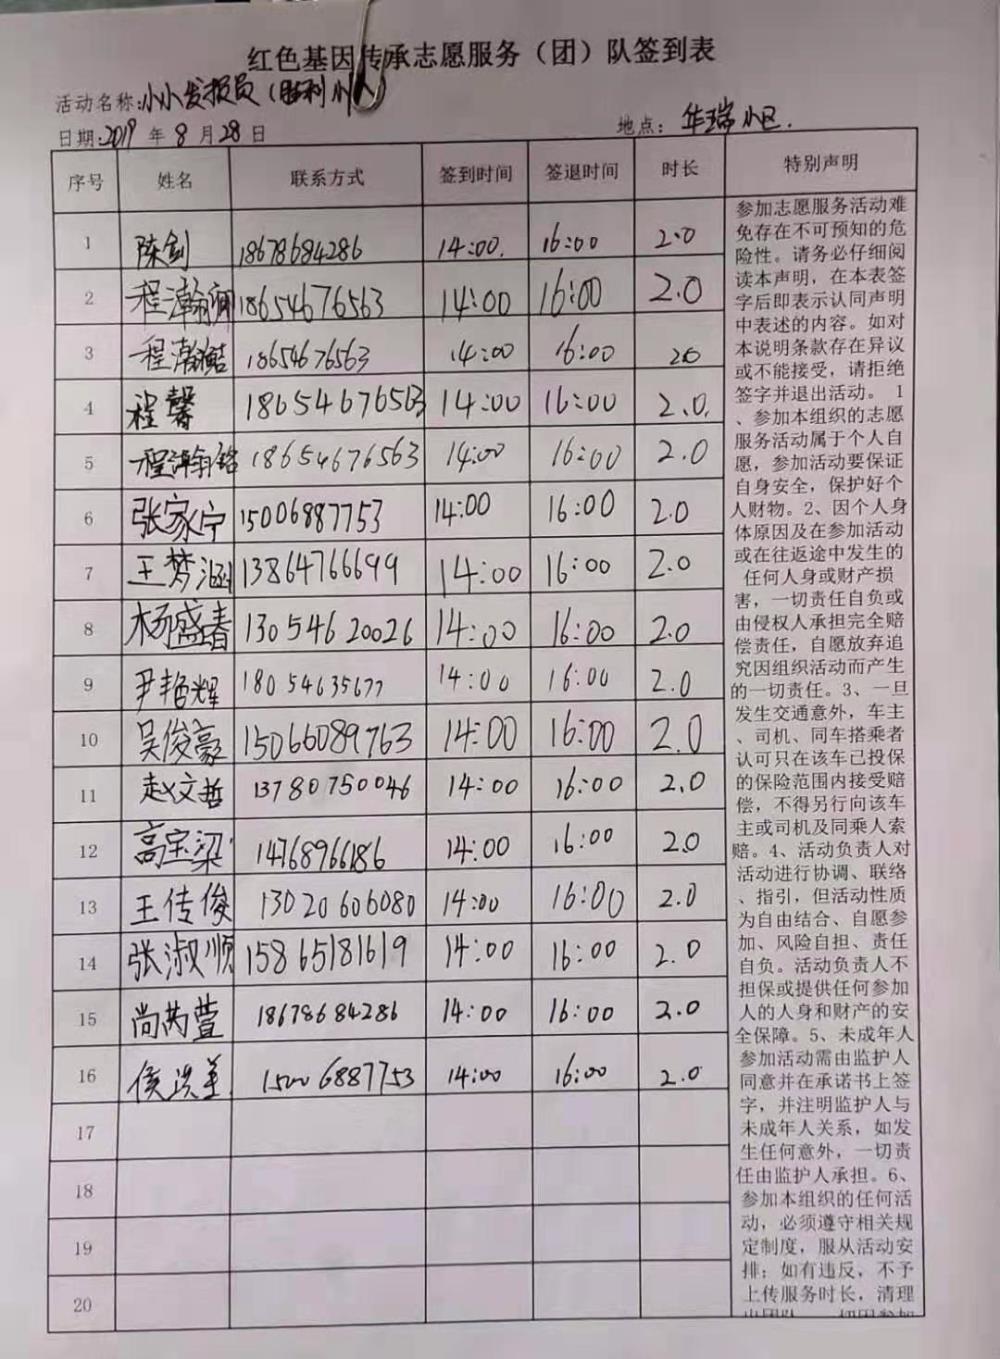 红色基因传承志愿服务（团）队签到表
活动名称:小小发报员(胜利小人)
日期:2019 年 8 月 28 日 地点: 华瑞小区.
序号 姓名 联系方式 签到时间 签退时间 时长 特别声明
1 陈剑 18678684286 14:00. 16:00 2.0
2 程瀚 18654676563 14:00 16:00 2.0
3 程瀚 18654676563 14:00 16:00 20
4 程馨 18654676563 14:00 16:00 2.0.
5 程瀚铭 18654676563 14:00 16:00 2.0
6 张家宁 15006887753 14:00 16:00 2.0
7 王梦涵 13864766699 14:00 16:00 2.0
8 杨盛春 13054620026 14:00 16:00 2.0
9 尹艳辉 18054635677 14:00 16:00 2.0
10 吴俊豪 15066089763 14:00 16:00 2.0
11 赵文哲 13780750046 14:00 16:00 2.0
12 高宝梁 14768966186 14:00 16:00 2.0
13 王传俊 13020606080 14:00 16:00 2.0
14 张淑顺 15865181619 14:00 16:00 2.0
15 尚芮萱 18678684286 14:00 16:00 2.0
16 侯洪 15006887753 14:00 16:00 2.0
17
18
19
20
参加志愿服务活动难
免存在不可预知的危
险性。请务必仔细阅
读本声明，在本表签
字后即表示认同声明
中表述的内容。如对
本说明条款存在异议
或不能接受，请拒绝
签字并退出活动。 1
、参加本组织的志愿
服务活动属于个人自
愿，参加活动要保证
自身安全，保护好个
人财物。2、因个人身
体原因及在参加活动
或在往返途中发生的
任何人身或财产损
害，一切责任自负或
由侵权人承担完全赔
偿责任，自愿放弃追
究因组织活动而产生
的一切责任。3、一旦
发生交通意外，车主
、司机、同车搭乘者
认可只在该车已投保
的保险范围内接受赔
偿，不得另行向该车
主或司机及同乘人索
赔。4、活动负责人对
活动进行协调、联络
、指引，但活动性质
为自由结合、自愿参
加、风险自担、责任
自负。活动负责人不
担保或提供任何参加
人的人身和财产的安
全保障。5、未成年人
参加活动需由监护人
同意并在承诺书上签
字，并注明监护人与
未成年人关系，如发
生任何意外，一切责
任由监护人承担。6、
参加本组织的任何活
动，必须遵守相关规
定制度，服从活动安
排；如有违反，不予
上传服务时长，清理